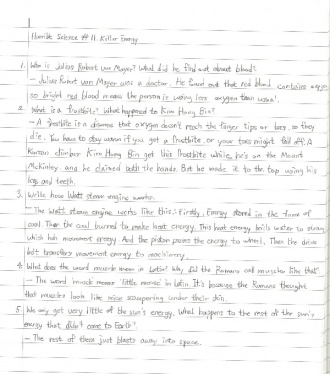 Horrible Science #11 Killer Energy
1. Who is Julius Robert von Mayer? What did he find out about blood?
- Julius Robert von Mayer was a doctor. He found out that red blood contains oxygen
so bright red blood means the person is using less oxygen than usual.
2. What is a frostbite? What happened to Kim Hong Bin?
- A frostbite is a disease that oxygen doesn't reach the finger tips or toes, so they
die. You have to stay warm if you get a frostbite or your toes might fall off. A
Korean climber Kim Hong Bin get this frostbite while, he's on the Mount
Mckinley and he claimed both the hands. But he made it to the top using his
legs and teeth.
3. Write how Watt steam engine works.
- The Watt steam engine works like this: Firstly, Energy stored in the form of
coal. Then the coal burned to make heat energy. This heat energy boils water to steam
which has movement energy. And the piston passes the energy to wheel. Then the drive
belt transfers movement energy to machinery.
4. What does the word muscle mean in Latin? Why did the Romans call muscles like that?
- The word muscle means 'little mouse' in Latin. It's because the Romans thought
that muscles look like mice scampering under their skin.
5. We only get very little of the sun's energy. What happens to the rest of the sun's
energy that didn't come to Earth?
- The rest of them just blasts away into space.